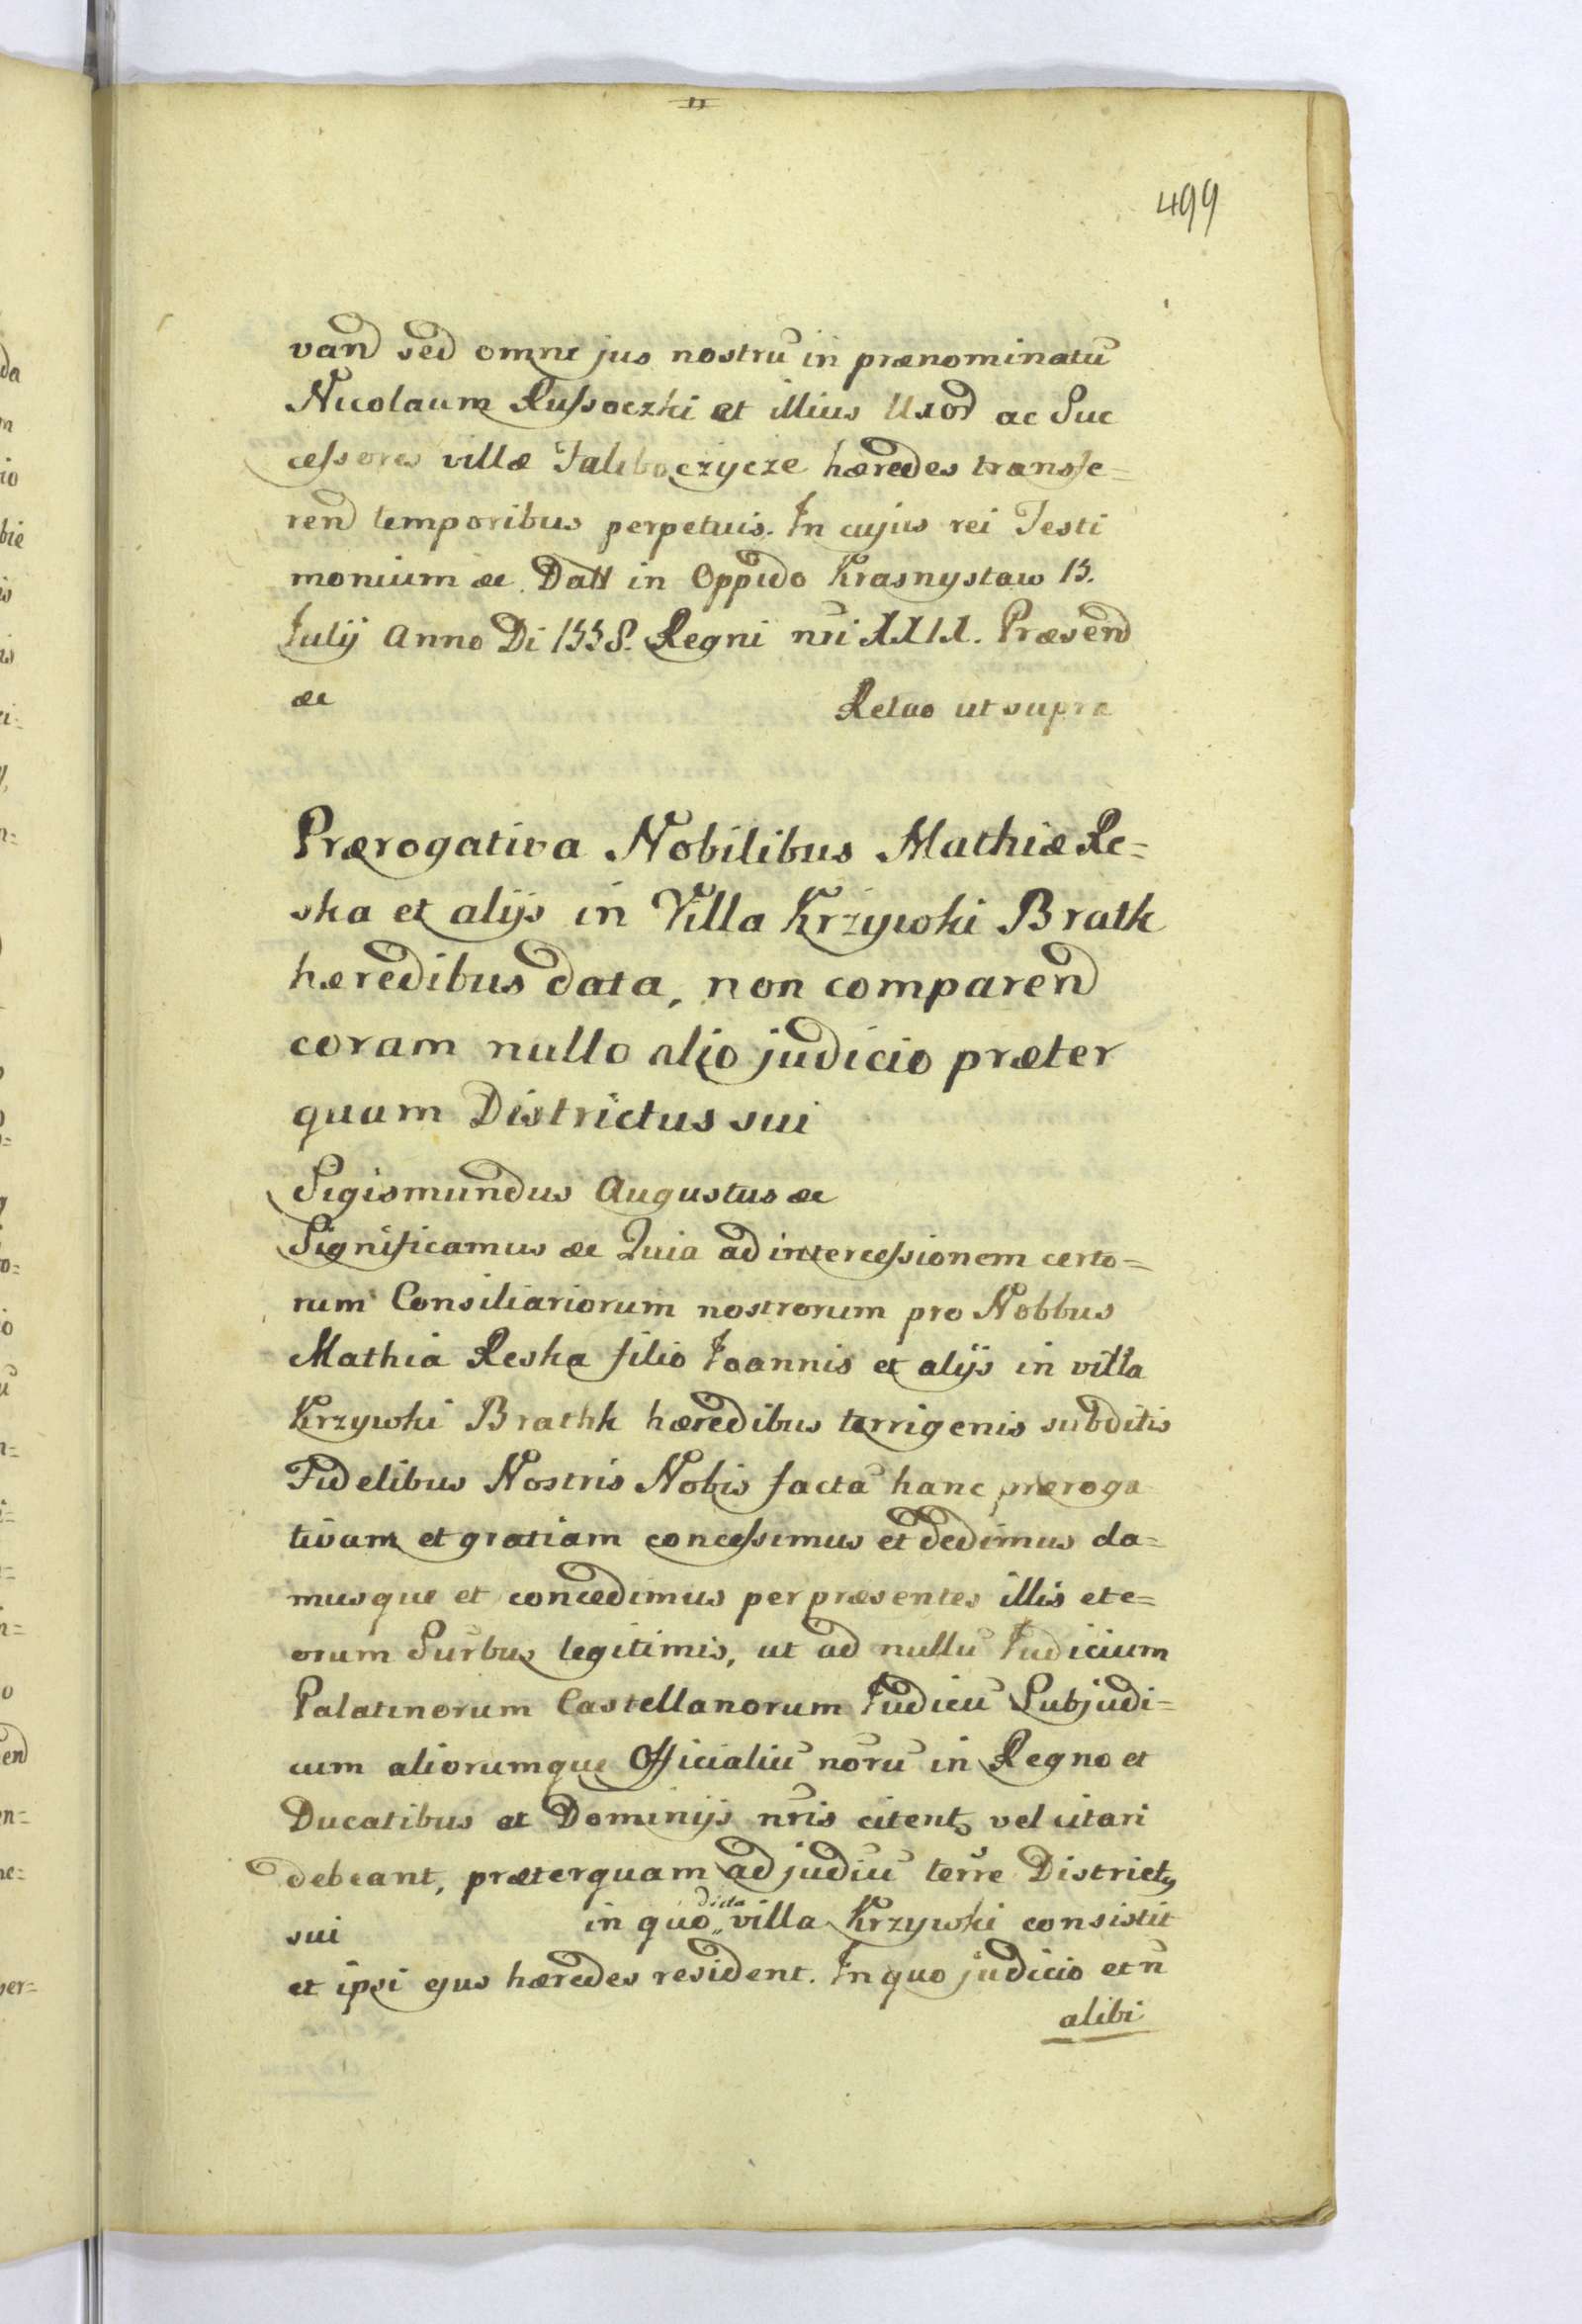 499
vand sed omne jus nostrū in prænominatū
Nicolaum Russoczki et illius Uxor ac Suc
cessores villæ Faliboczycze hæredes transfe=
rend temporibus perpetuis. In cujus rei Testi
monium &c. Datt in Oppido Krasnystaw 15.
Iulij Anno Di 1558. Regni nri XXIX. Præsend
&c Relao ut supra
Prærogativa Nobilibus Mathiæ Re=
ska et alijs in Villa Krzywki Bratk
hæredibus data, non comparend
coram nullo alio judicio præter
quam Districtus sui
Sigismundus Augustus &c
Significamus &c Quia ad intercessionem certo=
rum Consiliariorum nostrorum pro Nobbus
Mathia Reska filio Ioannis et alijs in villa
Krzywki Brathk hæredibus terrigenis subditis
Fidelibus Nostris Nobis factā hanc præroga
tivam et gratiam concessimus et dedimus da=
musque et concedimus per præsentes illis et e=
orum Surbus legitimis, ut ad nullū Iudicium
Palatinorum Castellanorum Iudicū Subjudi=
cum aliorumque Officialiū norū in Regno et
Ducatibus et Dominijs nris citent vel citari
debeant, præterquam ad judiū terre District9
sui in quo dicta villa Krzywki consistit
et ipsi ejus hæredes resident. In quo judicio et n
alibi